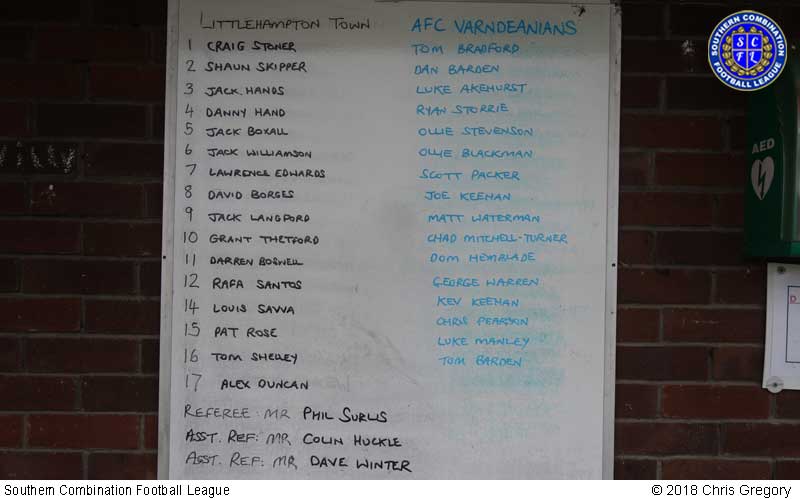 LITTLEHAMPTON TOWN AFC VARNDEANIANS
1 CRAIG STONER TOM BRADFORD
2 SHAUN SKIPPER DAN BARDEN
3 JACK HANDS LUKE AKEHURST
4 DANNY HAND RYAN STORRIE
5 JACK BOXALL OLLIE STEVENSON
6 JACK WILLIAMSON OLLIE BLACKMAN
7 LAWRENCE EDWARDS SCOTT PACKER
8 DAVID BORGES JOE KEENAN
9 JACK LANGFORD MATT WATERMAN
10 GRANT THETFORD CHAD MITCHELL-TURNER
11 DARREN BOSWELL DOM HEMBLADE
12 RAFA SANTOS GEORGE WARREN
14 LOUIS SAVVA KEV KEEHAN
15 PAT ROSE CHRIS PEARSON
16 TOM SHELLEY LUKE MANLEY
17 ALEX DUNCAN TOM BARDEN
REFEREE: MR PHIL SURLIS
ASST. REF: MR COLIN HUCKLE
ASST. REF: MR DAVE WINTER
SOUTHERN COMBINATION
SCFL
FOOTBALL LEAGUE
AED
Southern Combination Football League © 2018 Chris Gregory